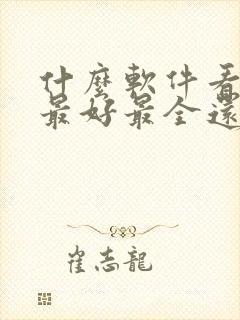 什麼軟件看
最好最全還
崔志龍